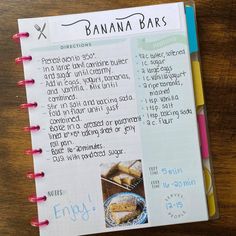 BANANA BARS
DIRECTIONS
- Preheat oven to 350°.
- In a large bowl combine butter
and sugar until creamy.
- Add in eggs, yogurt, bananas,
and vanilla. Mix until
combined.
- Stir in salt and baking soda.
- Fold in flour until just
combined.
- Bake in a greased or parchment
lined baking sheet or jelly
roll pan.
- Bake 16-20 minutes.
- Dust with powdered sugar.
1/2 c. butter, softened
1 c. sugar
2 large eggs
1 c. vanilla yogurt
2 ripe bananas,
mashed
1 tsp vanilla
1 tsp salt
1 tsp baking soda
2 c. flour
NOTES:
Enjoy!
5 min
16-20 min
SERVES
12-15
PEOPLE